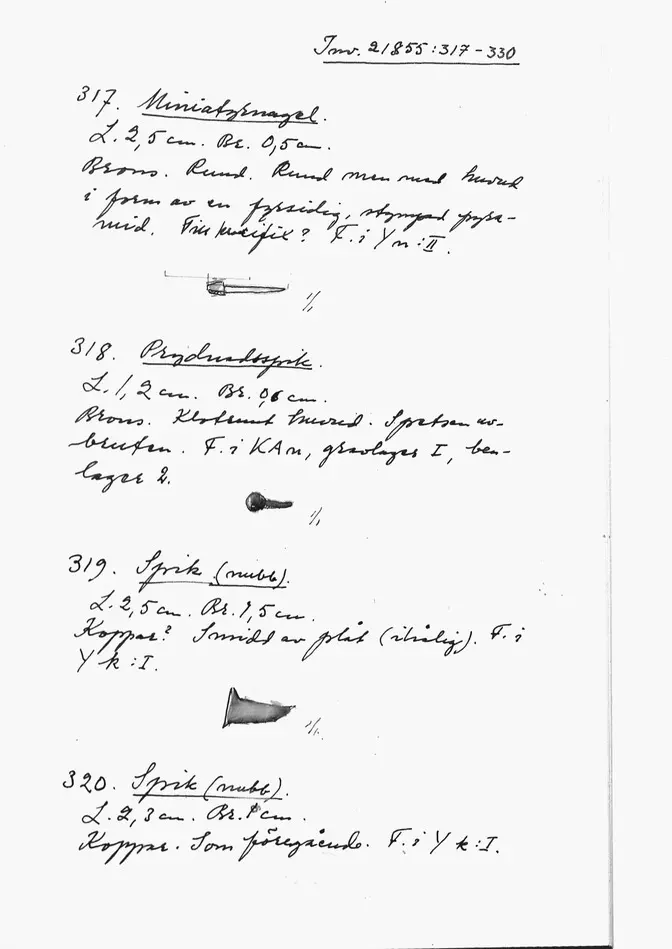 Inv. 21855:317-330
317. Miniatyrnagel.
L. 2,5 cm. Br. 0,5 cm.
Brons. Rund. Rund men med huvud
i form av en fyrsidig, stympad pyra-
mid. Till krucifix? F. i Y n:II.
1/1
318. Prydnadsspik.
L. 1,2 cm. Br. 0,6 cm.
Brons. Klotrunt huvud. Spetsen av-
bruten. F. i KAn, gravlager I, ben-
lager 2.
1/1
319. Spik (nubb).
L. 2,5 cm. Br. 1,5 cm.
Koppar? Smidd av plåt (ihålig). F. i
Y k:I.
1/1
320. Spik (nubb).
L. 2,3 cm. Br. 1 cm.
Koppar. Som föregående. F. i Y k:I.